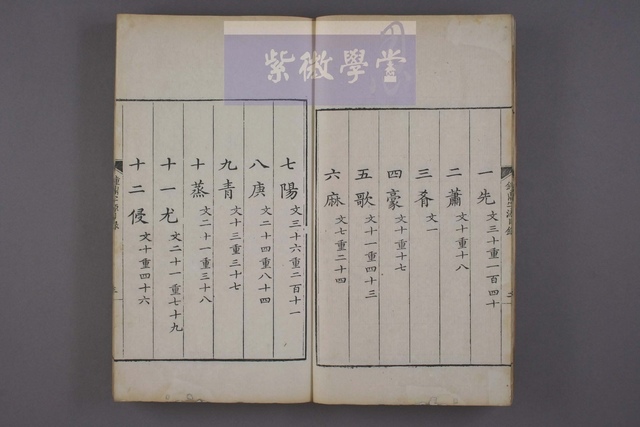 紫微學堂
一先 文三十重一百四十
二蕭 文十重十八
三肴 文一
四豪 文十重十七
五歌 文十一重四十三
六麻 文七重二十四
七陽 文三十六重二百十一
八庚 文二十四重八十四
九青 文十三重三十七
十蒸 文二十一重三十八
十一尤 文二十一重七十九
十二侵 文十重四十六